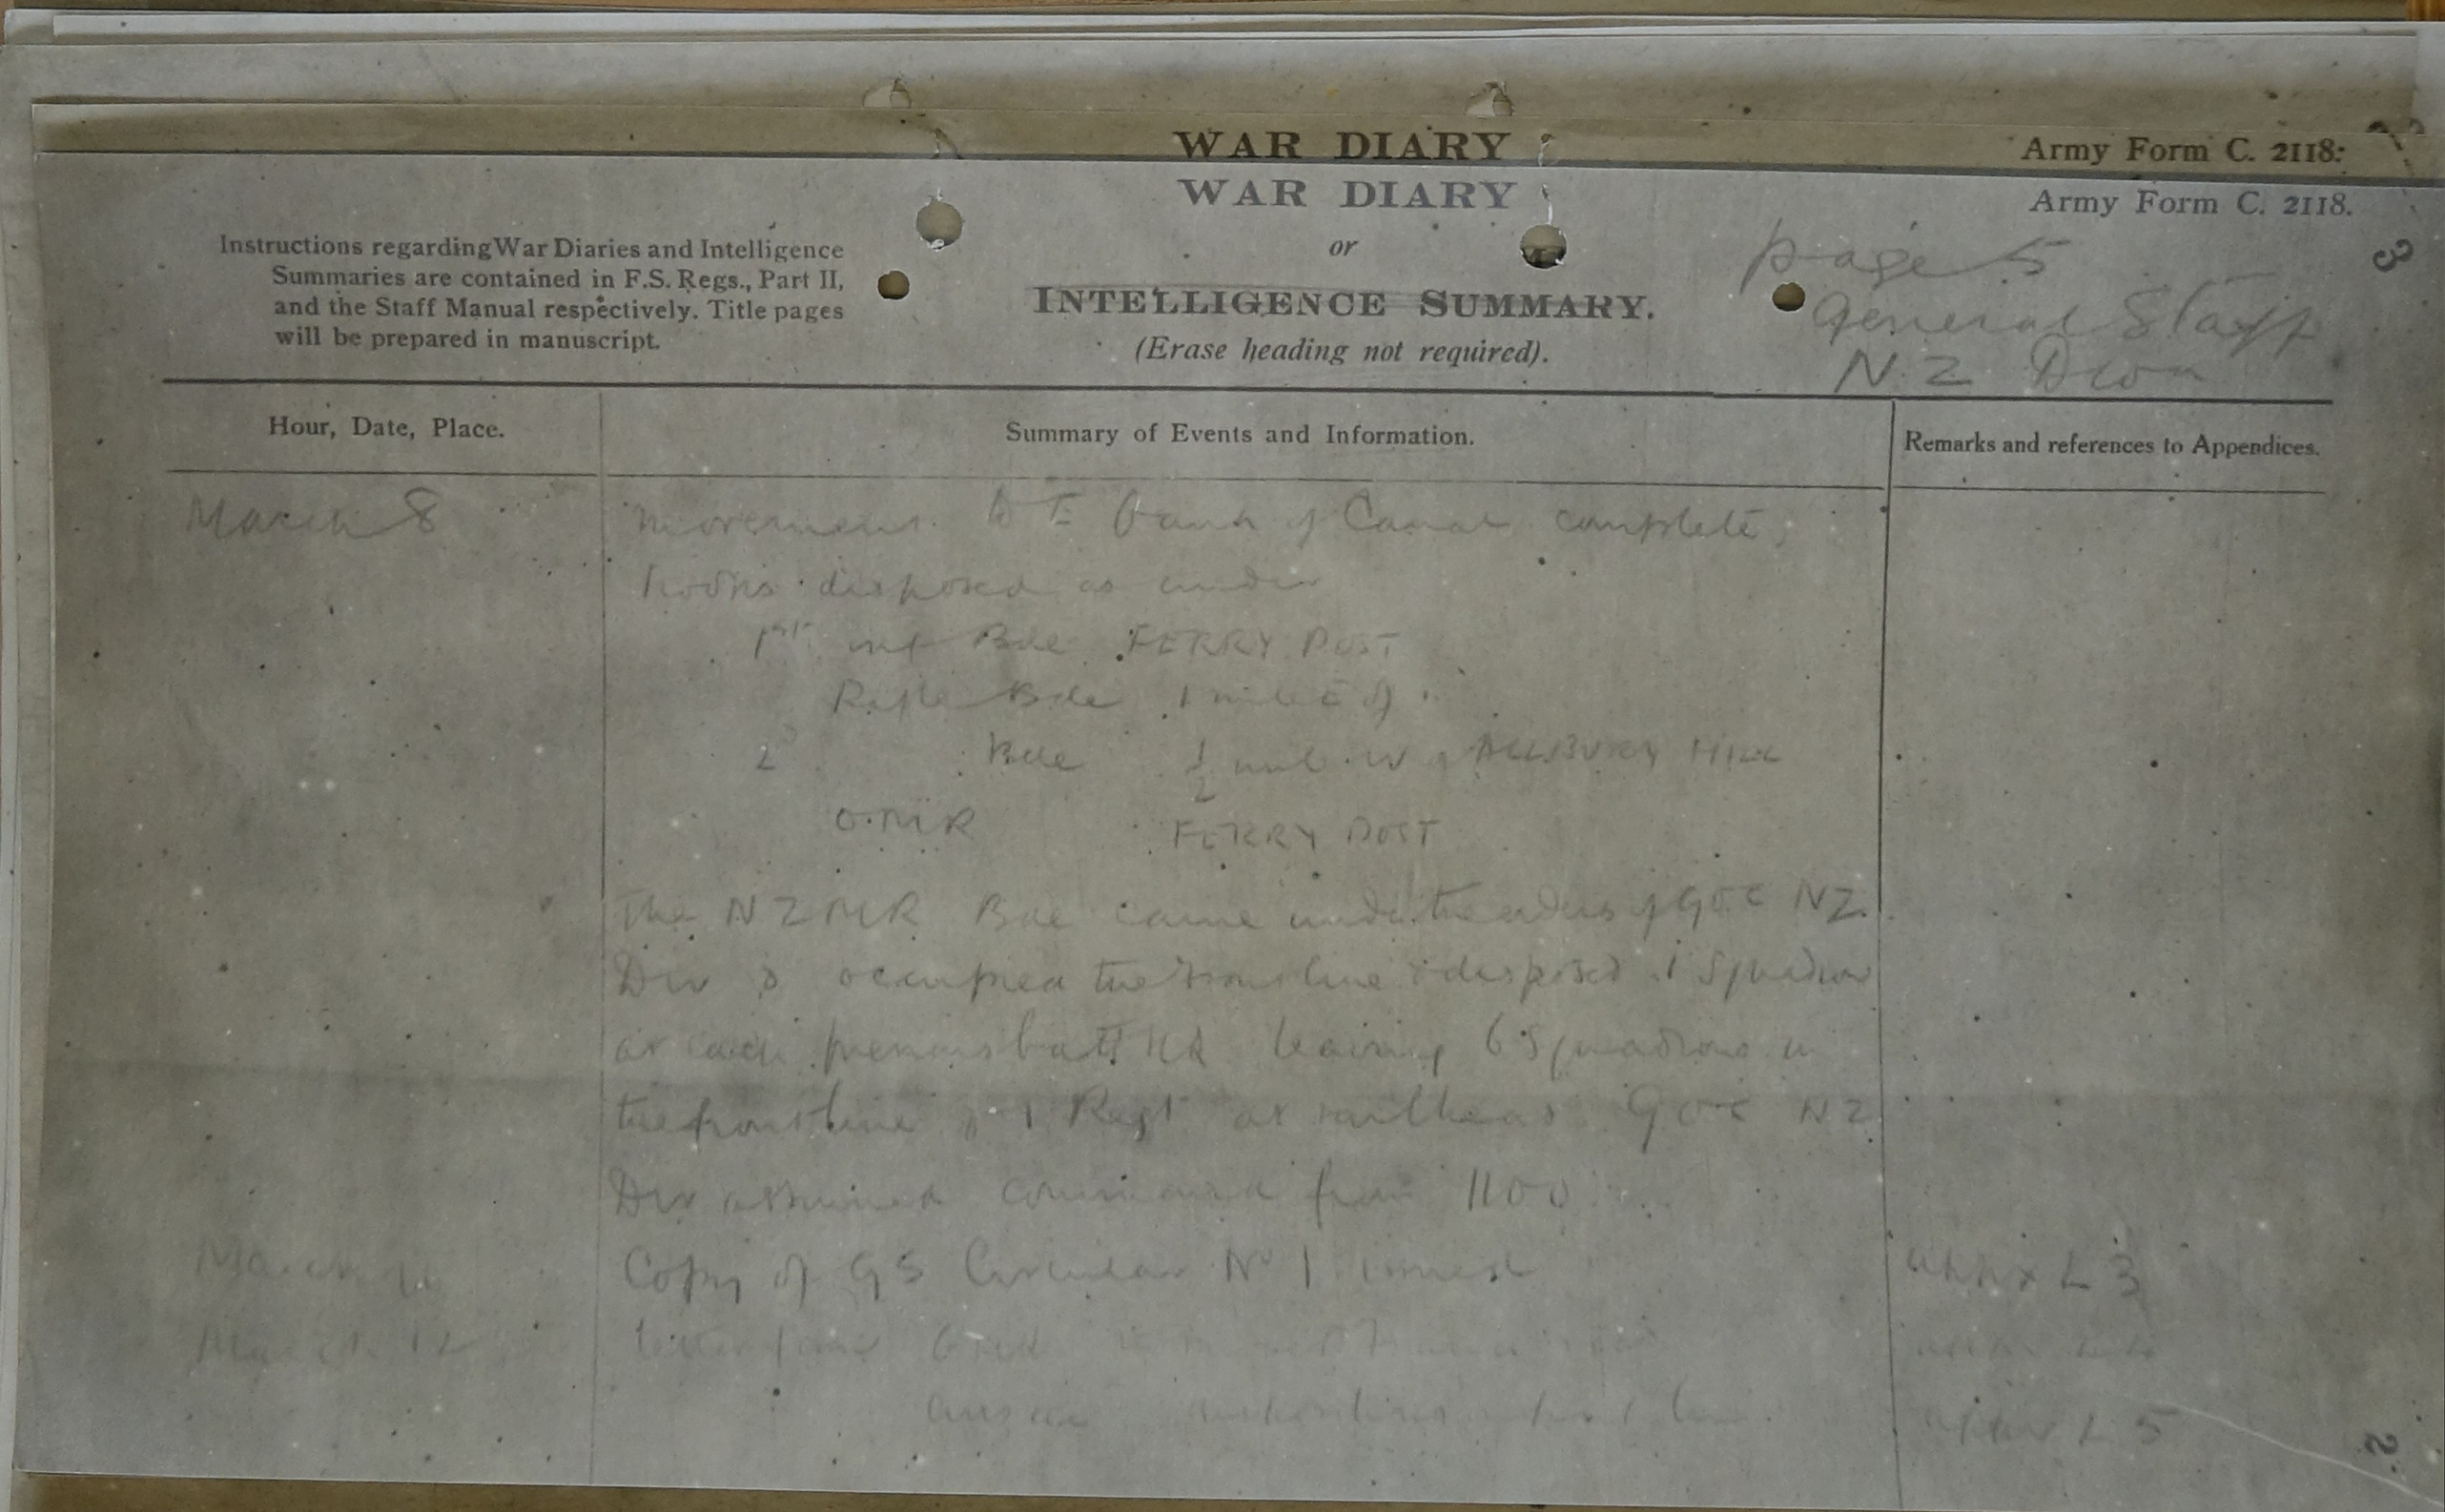 WAR DIARY
Army Form C. 2118.
WAR DIARY
Army Form C. 2118.
or
INTELLIGENCE SUMMARY.
(Erase heading not required).
Instructions regarding War Diaries and Intelligence
Summaries are contained in F.S. Regs., Part II,
and the Staff Manual respectively. Title pages
will be prepared in manuscript.
page 5
General Staff
N.Z Divn
3
Hour, Date, Place.
Summary of Events and Information.
Remarks and references to Appendices.
March 8
Movement to E bank of Canal complete,
troops disposed as under
1st inf Bde FERRY POST
Rifle Bde 1 mile E of "
2 Bde 1/2 mile W of HILL
O.M.R FERRY POST
The NZMR Bde came under the orders of GOC NZ
Div & occupied the front line & disposed 1 Squadron
at each previous batt HQ leaving 6 Squadrons in
the front line & 1 Regt at railhead GOC NZ
Div assumed command from 1100
March
Copy of GS Circular No 1 issued
L 3
March 12
Letter from
L 5
2